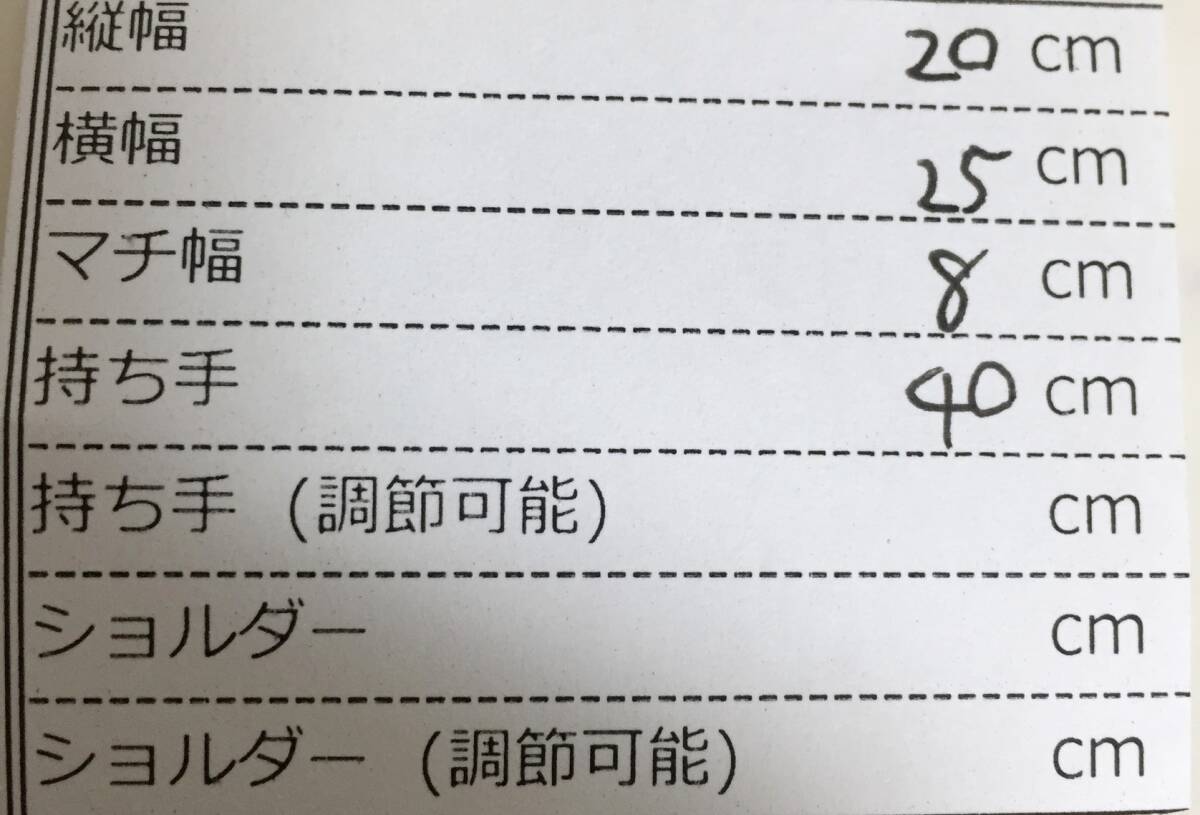 縦幅 20 cm
横幅 25 cm
マチ幅 8 cm
持ち手 40 cm
持ち手 (調節可能) cm
ショルダー cm
ショルダー (調節可能) cm